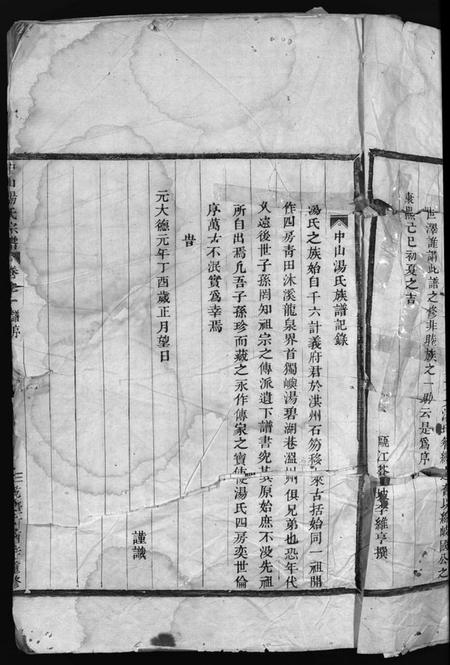 世澤誰謂此譜之修非勝族之一助云是爲序
康熙己巳初夏之吉
甌江
李維亨撰
中山湯氏族譜記錄
湯氏之族始自千六計義府君於洪州石笏移來古括始同一祖開
作四房青田沐溪龍泉界首獨嶼湯碧湖巷溫州俱兄弟也恐年代
久遠後世子孫罔知祖宗之傳派遺下譜書究其原始庶不没先祖
所自出焉凡吾子孫珍而藏之永作傳家之寶使湯氏四房奕世倫
序萬古不泯實爲幸焉
旹
元大德元年丁酉歲正月望日
謹識
中山湯氏宗譜 卷之一 譜序